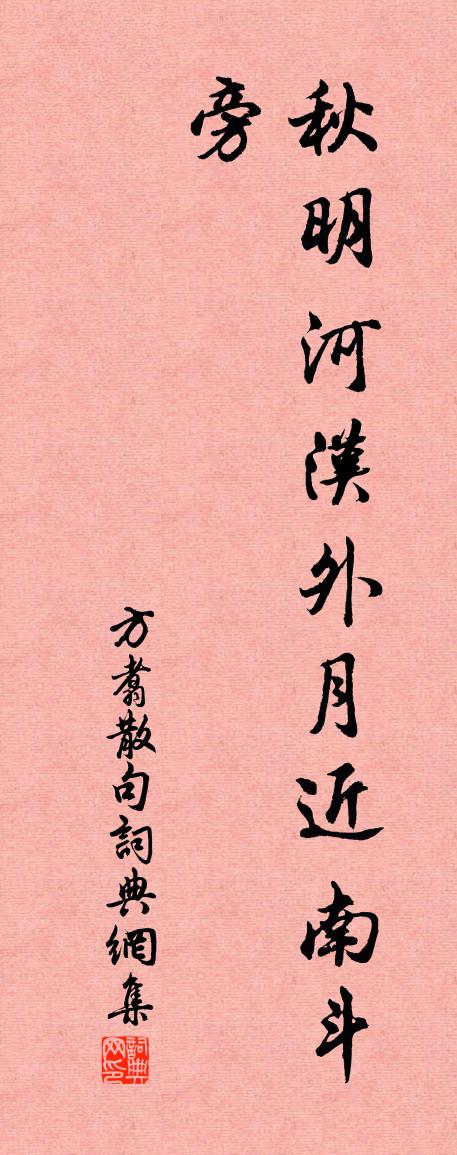 秋明河漢外月近南斗
旁
方翥散句詞典網集
詞典
网印